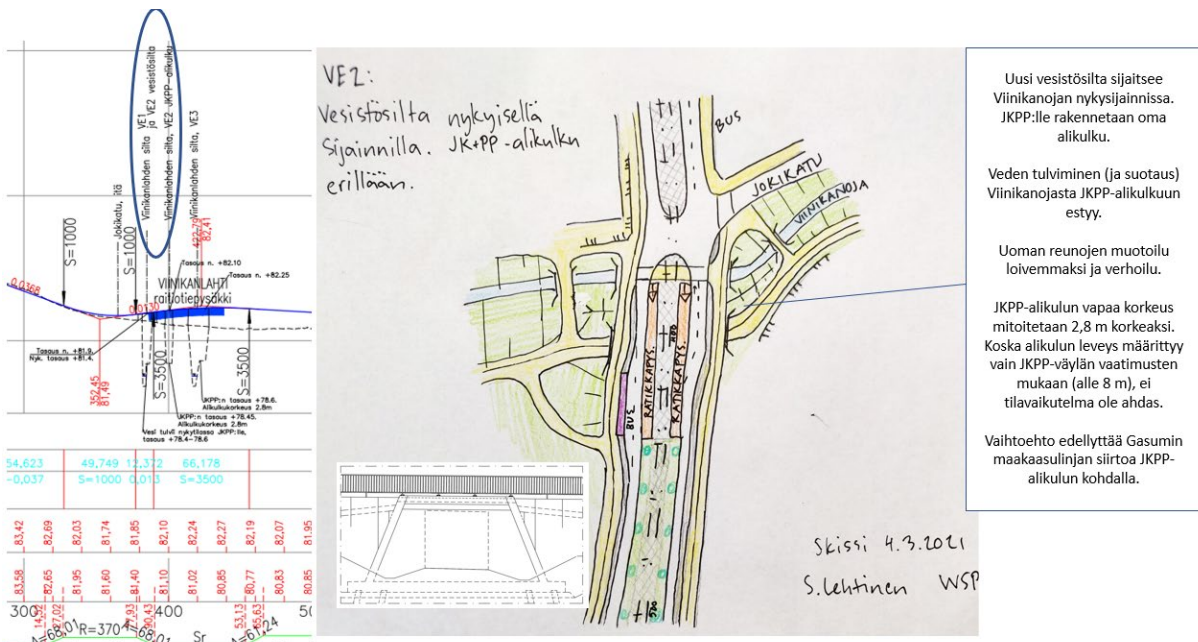 Viinikanlahden silta VE1
ja VE2 vesistösilta
Viinikanlahden silta, VE2 JKPP-alikulku
Viinikanlahden silta, VE3
Jokikatu, itä
S=1000
S=1000
422,79
82,41
0,0368
0,0130
Tasaus n. +82.10
Tasaus n. +82.25
VIINIKANLAHTI
raitiotiepysäkki
Tasaus n. +81.9
Nyk. tasaus +81.4
S=3500
S=3500
352,45
81,49
JKPP:n tasaus +78.6.
Alikulkukorkeus 2.8m
JKPP:n tasaus +78.45.
Alikulkukorkeus 2.8m
Vesi tulvii nykytilassa JKPP:lle,
tasaus +78.4-78.6
54,623 49,749 12,372 66,178
-0,037 S=1000 0,013 S=3500
83,42 82,69 82,03 81,74 81,85 82,10 82,24 82,27 82,19 82,07 81,95
83,58 82,65 81,95 81,60 81,40 81,10 81,02 80,85 80,77 80,83 80,85
300 400
R=370
Sr
VE2:
Vesistösilta nykyisellä
sijainnilla. JK+PP-alikulku
erillään.
BUS
JOKIKATU
VIINIKANOJA
RATIKKAPYS.
RATIKKAPYS.
BUS
400
500
Skissi 4.3.2021
S.Lehtinen WSP
Uusi vesistösilta sijaitsee
Viinikanojan nykysijainnissa.
JKPP:lle rakennetaan oma
alikulku.
Veden tulviminen (ja suotaus)
Viinikanojasta JKPP-alikulkuun
estyy.
Uoman reunojen muotoilu
loivemmaksi ja verhoilu.
JKPP-alikulun vapaa korkeus
mitoitetaan 2,8 m korkeaksi.
Koska alikulun leveys määrittyy
vain JKPP-väylän vaatimusten
mukaan (alle 8 m), ei
tilavaikutelma ole ahdas.
Vaihtoehto edellyttää Gasumin
maakaasulinjan siirtoa JKPP-
alikulun kohdalla.